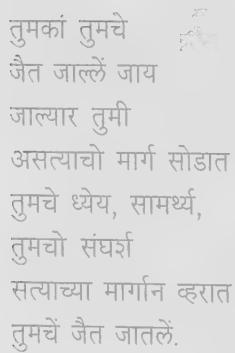 तुमकां तुमचे
जैत जाल्लें जाय
जाल्यार तुमी
असत्याचो मार्ग सोडात
तुमचे ध्येय, सामर्थ्य,
तुमचो संघर्श
सत्याच्या मार्गान व्हरात
तुमचें जैत जातलें.